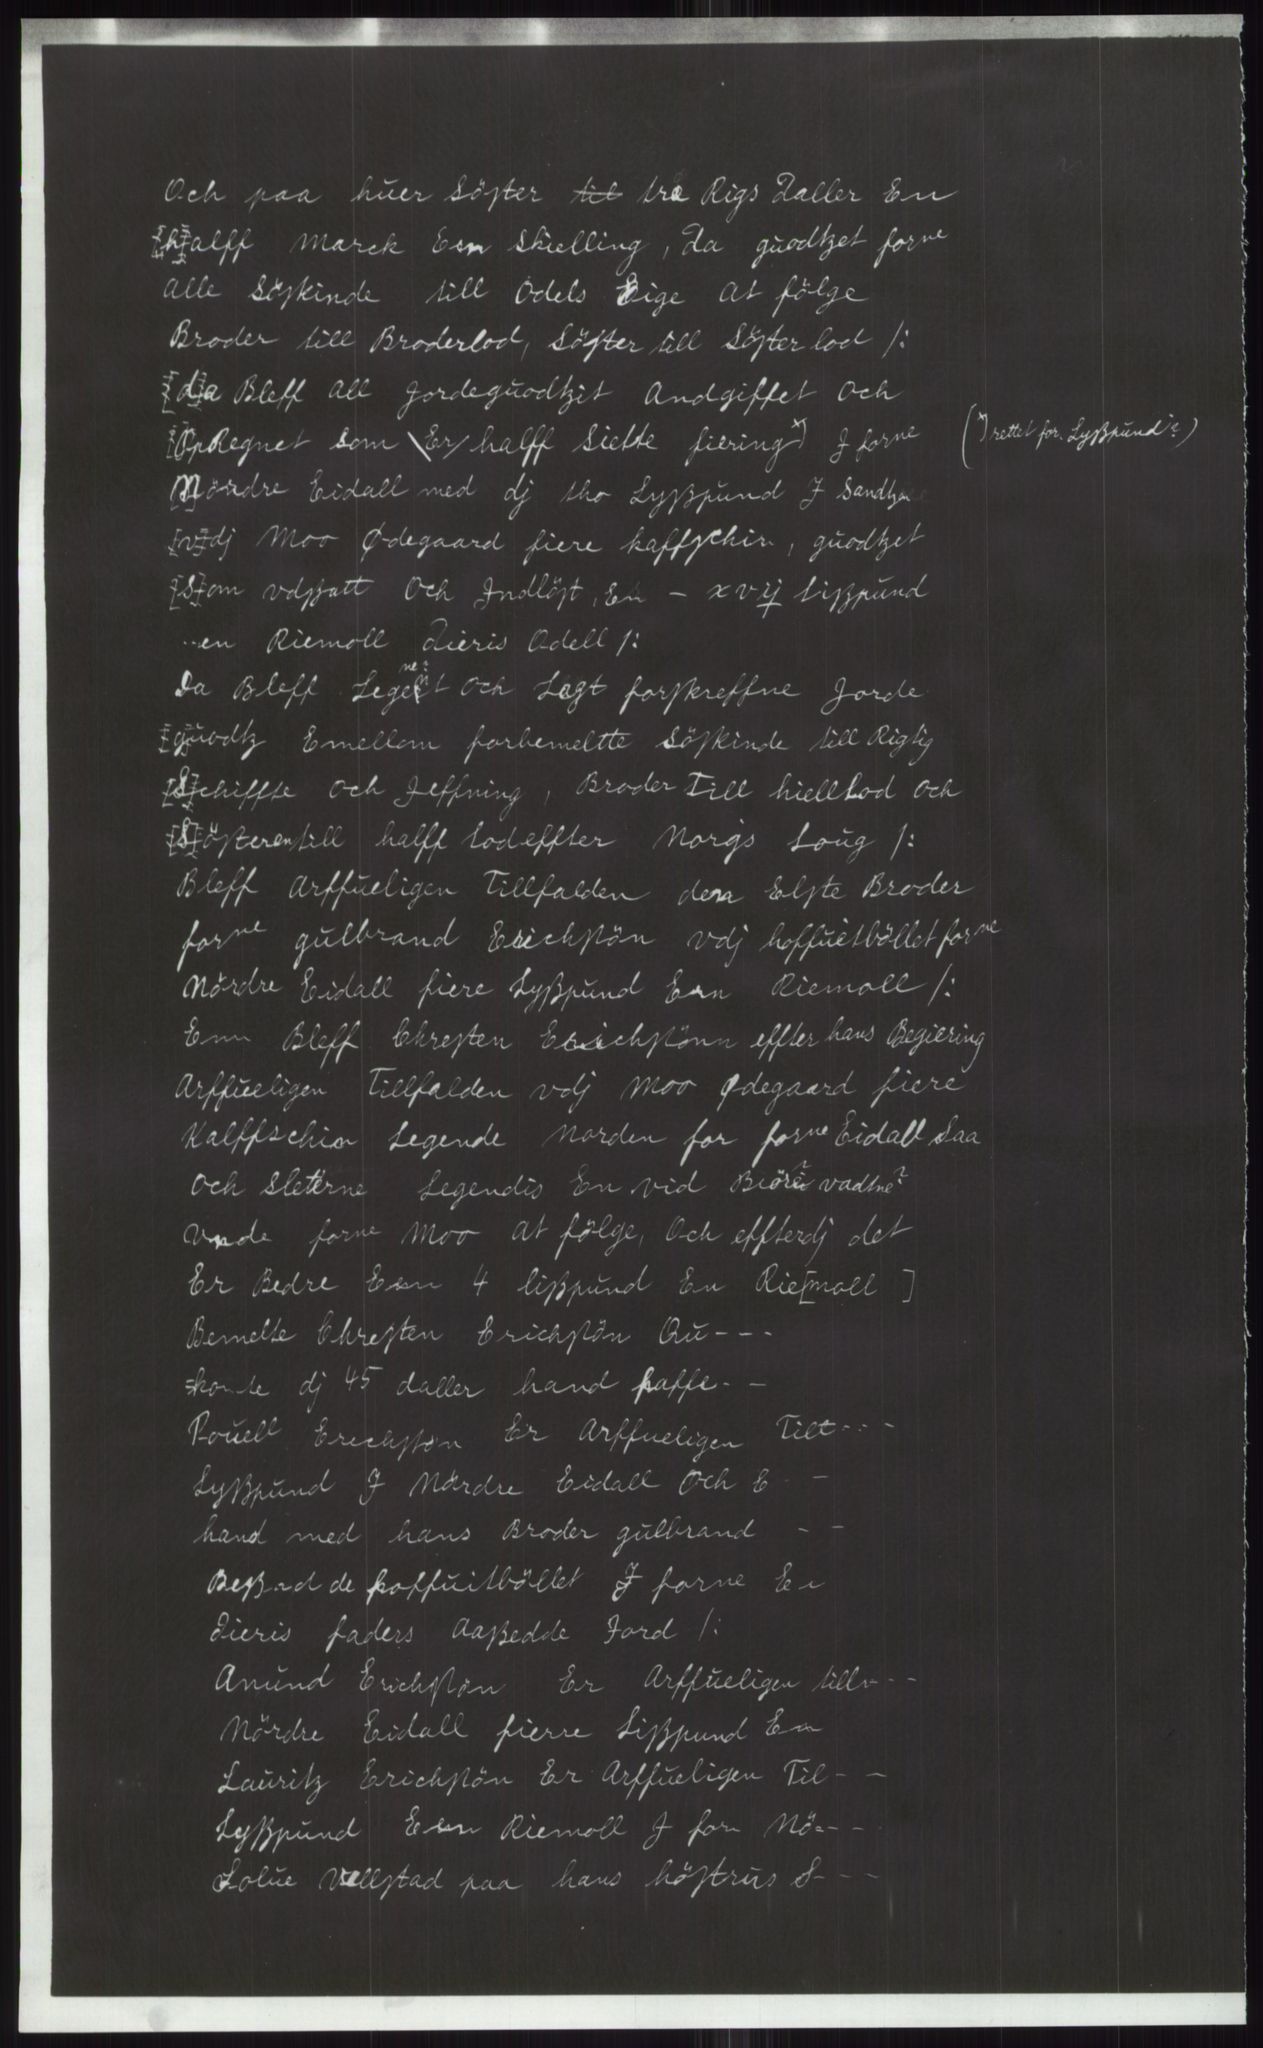 Och paa huer Söster til tre Rigs Daller En
[h]alff Marck Een Skielling, Da guodtzet forne
alle Söskinde till Odels Eige At fölge
Broder till Broderlod, Söster till Söster lod /:
[d]a Bleff All Jordeguodtzit Andgiffet Och
[Op]Regnet Som \Er/ halff Siette fiering x) J forne (x) rettet for. Lyßpund?)
[N]ördre Eidall med dj tho Lyßpund J Sandtz
[v]dj Moo Ødegaard fiere kaffschin, guodtzet
[S]om vdssatt Och Indlöst, En - xvij Lißpund
..en Riemoll Dieris Odell /:
Da Bleff Legent ne? Och Lagt forskreffne Jorde
[g]uodtz Emellom forbemeltte Söskinde till Rigtig
[S]chiffte Och Jeffning, Broder Till hiell Lod Och
[S]österen till halff Lod effter Norgs Loug /:
Bleff Arffueligen Tillfalden den Elste Broder
forne gulbrand Erichssön vdj hoffuitböllet forne
Nördre Eidall fiere Lyßpund Een Riemoll /:
Enn Bleff Chresten Erichssönn effter hans Begiering
Arffueligen Tillfalden vdj Moo Ødegaard fiere
Kalffschin Legende Norden for forne Eidall Saa
Och Sleterne Legendis En vid Biörne? vadtne?
Vnde forne Moo At fölge, Och effterdj det
Er Bedre Een 4 lißpund En Rie[moll ]
Bemelte Chresten Erichssön Qu---
komte dj 45 daller hand haffe--
Pouell Erichssön Er Arffueligen Tilt---
Lyßpund J Nördre Eidall Och E--
hand med hans Broder gulbrand --
Beßad de hoffuitböllet J forne Ei
Dieris faders Aaßedde Jord /:
Amund Erichssön Er Arffueligen till---
Nördre Eidall fierre Lißpund En
Lauritz Erichssön Er Arffueligen Til--
Lyßpund Een Riemoll J forn Nö---
Solue Vellstad paa hans höstrus S---